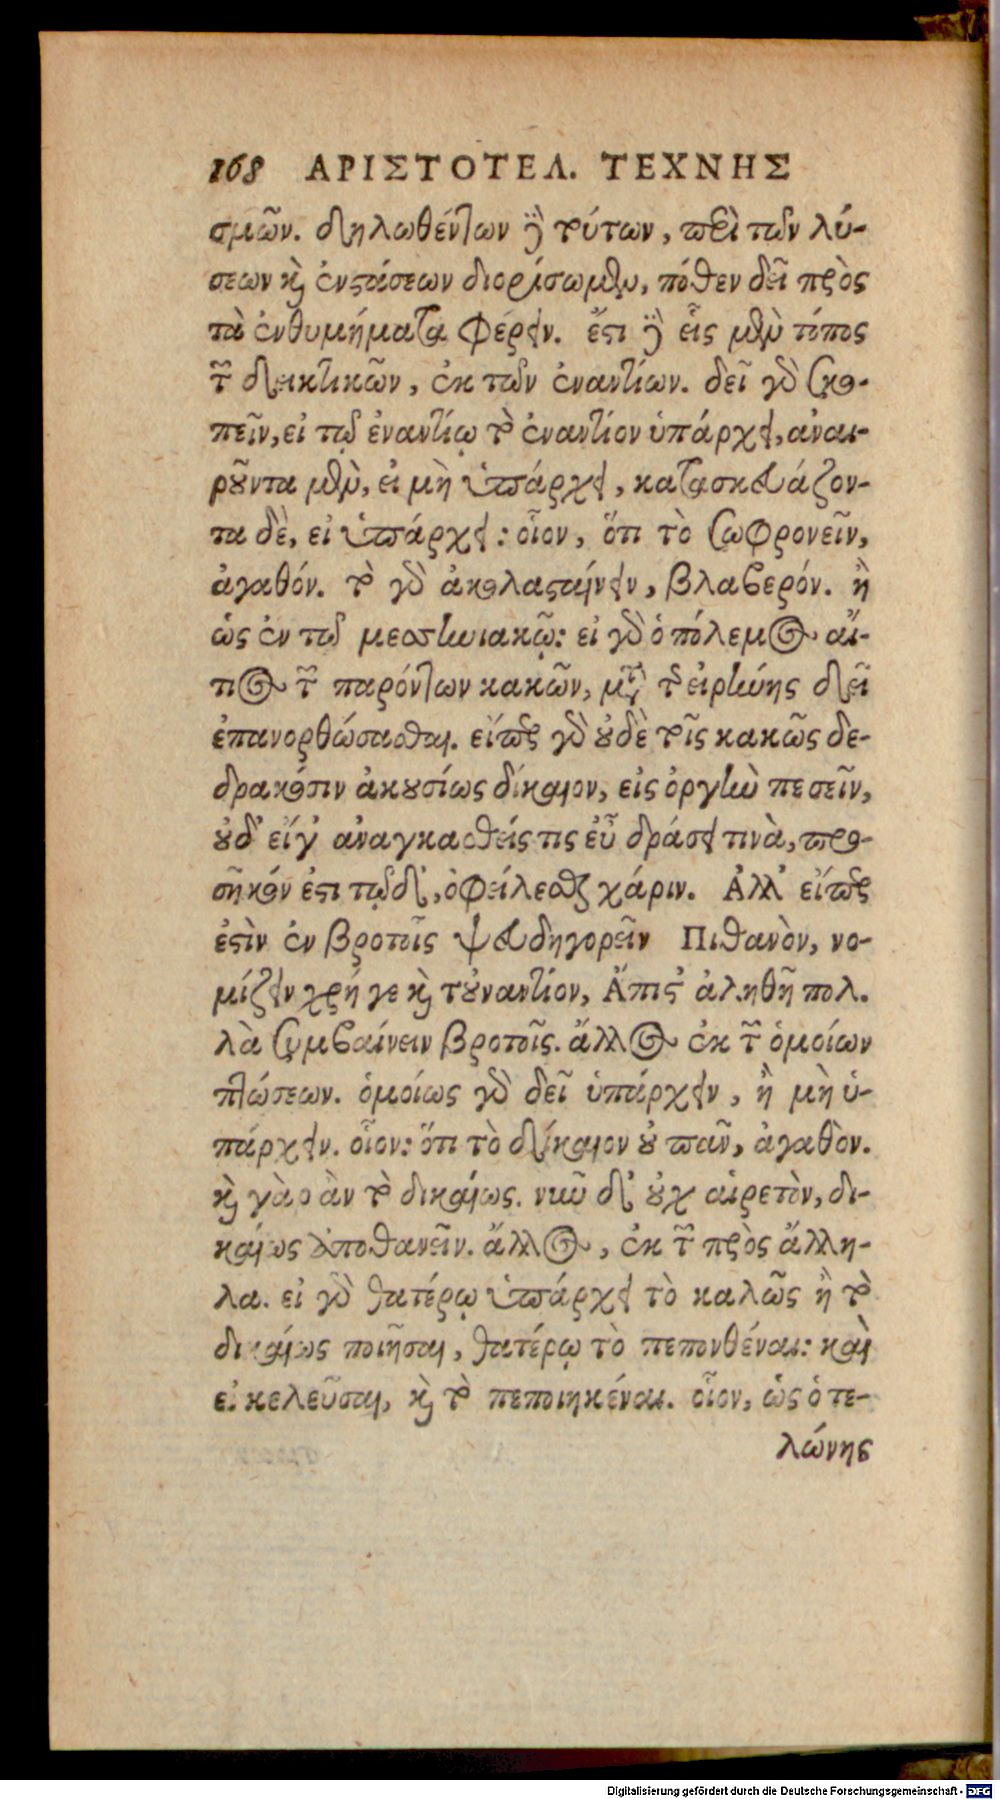 168 ΑΡΙΣΤΟΤΕΛ. ΤΕΧΝΗΣ
σμῶν. δηλωθέντων δὲ τούτων, περὶ τῶν λύ-
σεων καὶ ἐνστάσεων διορίσωμεν, πόθεν δεῖ πρὸς
τὰ ἐνθυμήματα φέρειν. ἔστι δὲ εἷς μὲν τόπος
τῶν δεικτικῶν, ἐκ τῶν ἐναντίων. δεῖ γὰρ σκο-
πεῖν, εἰ τῷ ἐναντίῳ τὸ ἐναντίον ὑπάρχει, ἀναι-
ροῦντα μὲν, εἰ μὴ ὑπάρχει, κατασκευάζον-
τα δὲ, εἰ ὑπάρχει: οἷον, ὅτι τὸ σωφρονεῖν,
ἀγαθόν. τὸ γὰρ ἀκολασταίνειν, βλαβερόν. ἢ
ὡς ἐν τῷ μεσσηνιακῷ: εἰ γὰρ ὁ πόλεμος αἴ-
τιος τῶν παρόντων κακῶν, μετὰ τῆς εἰρήνης δεῖ
ἐπανορθώσασθαι. εἴπερ γὰρ οὐδὲ τοῖς κακῶς δε-
δρακόσιν ἀκουσίως δίκαιον, εἰς ὀργὴν πεσεῖν,
οὐδ' εἴγ' ἀναγκασθείς τις εὖ δράσει τινὰ, προ-
σῆκόν ἐστι τῷδ', ὀφείλεσθαι χάριν. Ἀλλ' εἴπερ
ἐστὶν ἐν βροτοῖς ψευδηγορεῖν Πιθανὸν, νο-
μίζειν χρή γε καὶ τοὐναντίον, Ἄπιστ' ἀληθῆ πολ-
λὰ συμβαίνειν βροτοῖς. ἄλλος ἐκ τῶν ὁμοίων
πτώσεων. ὁμοίως γὰρ δεῖ ὑπάρχειν, ἢ μὴ ὑ-
πάρχειν. οἷον: ὅτι τὸ δίκαιον οὐ πᾶν, ἀγαθὸν.
καὶ γὰρ ἂν τὸ δικαίως. νῦν δ' οὐχ αἱρετὸν, δι-
καίως ἀποθανεῖν. ἄλλος, ἐκ τῶν πρὸς ἄλλη-
λα. εἰ γὰρ θατέρῳ ὑπάρχει τὸ καλῶς ἢ τὸ
δικαίως ποιῆσαι, θατέρῳ τὸ πεπονθέναι: καὶ
εἰ κελεῦσαι, καὶ τὸ πεποιηκέναι. οἷον, ὡς ὁ τε-
λώνης
Digitalisierung gefördert durch die Deutsche Forschungsgemeinschaft - DFG